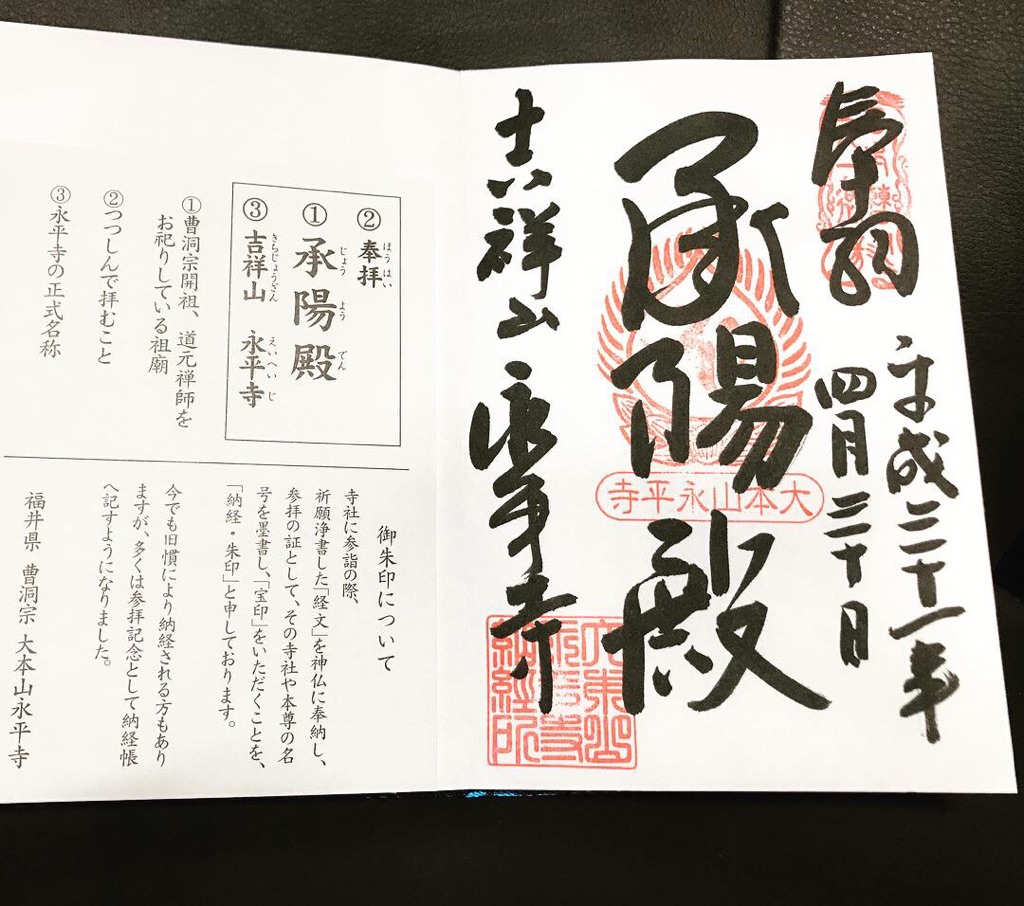 奉拝
平成三十一年
四月三十日
承陽殿
大本山永平寺
吉祥山 永平寺
②奉拝
ほうはい
①承陽殿
じょうようでん
③吉祥山 永平寺
きちじょうざん えいへいじ
①曹洞宗開祖、道元禅師を
お祀りしている祖廟
②つつしんで拝むこと
③永平寺の正式名称
御朱印について
寺社に参詣の際、
祈願浄書した「経文」を神仏に奉納し、
参拝の証として、その寺社や本尊の名
号を墨書し、「宝印」をいただくことを、
「納経・朱印」と申しております。
今でも旧慣により納経される方もあり
ますが、多くは参拝記念として納経帳
へ記すようになりました。
福井県 曹洞宗 大本山永平寺